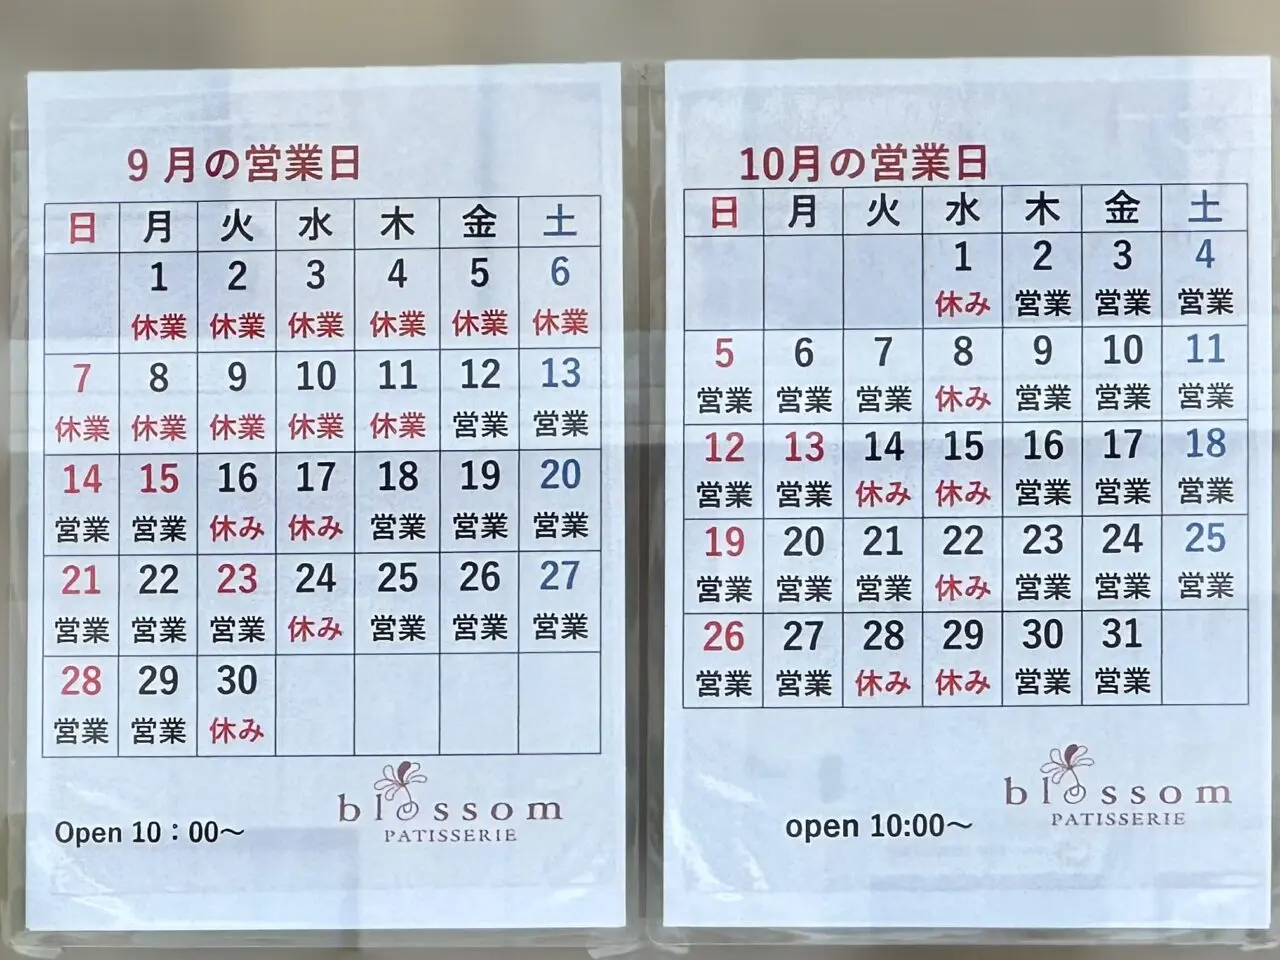 9月の営業日
日 月 火 水 木 金 土
1 2 3 4 5 6
休業 休業 休業 休業 休業 休業
7 8 9 10 11 12 13
休業 休業 休業 休業 休業 営業 営業
14 15 16 17 18 19 20
営業 営業 休み 休み 営業 営業 営業
21 22 23 24 25 26 27
営業 営業 営業 休み 営業 営業 営業
28 29 30
営業 営業 休み
Open 10：00～
blossom
PATISSERIE
10月の営業日
日 月 火 水 木 金 土
1 2 3 4
休み 営業 営業 営業
5 6 7 8 9 10 11
営業 営業 営業 休み 営業 営業 営業
12 13 14 15 16 17 18
営業 営業 休み 休み 営業 営業 営業
19 20 21 22 23 24 25
営業 営業 営業 休み 営業 営業 営業
26 27 28 29 30 31
営業 営業 休み 休み 営業 営業
open 10:00～
blossom
PATISSERIE